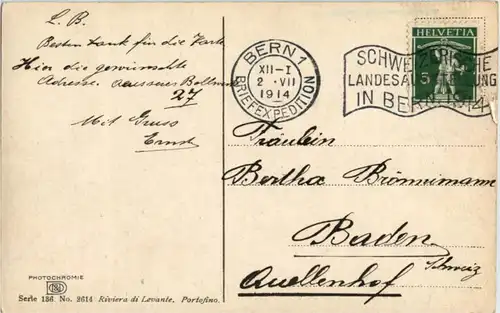 L. B.
Besten Dank für die Karte
Hier die gewünschte
Adresse. Aeusseres Bollwerk
27
Mit Gruss
Ernst
BERN 1
XII-I
2. VII
1914
BRIEFEXPEDITION
SCHWEIZERISCHE
LANDESAUSSTELLUNG
IN BERN 1914
HELVETIA
5
Fräulein
Bertha Brönnimann
Baden
Schweiz
Quellenhof
PHOTOCHROMIE
Serie 136 No. 2614 Riviera di Levante. Portofino.